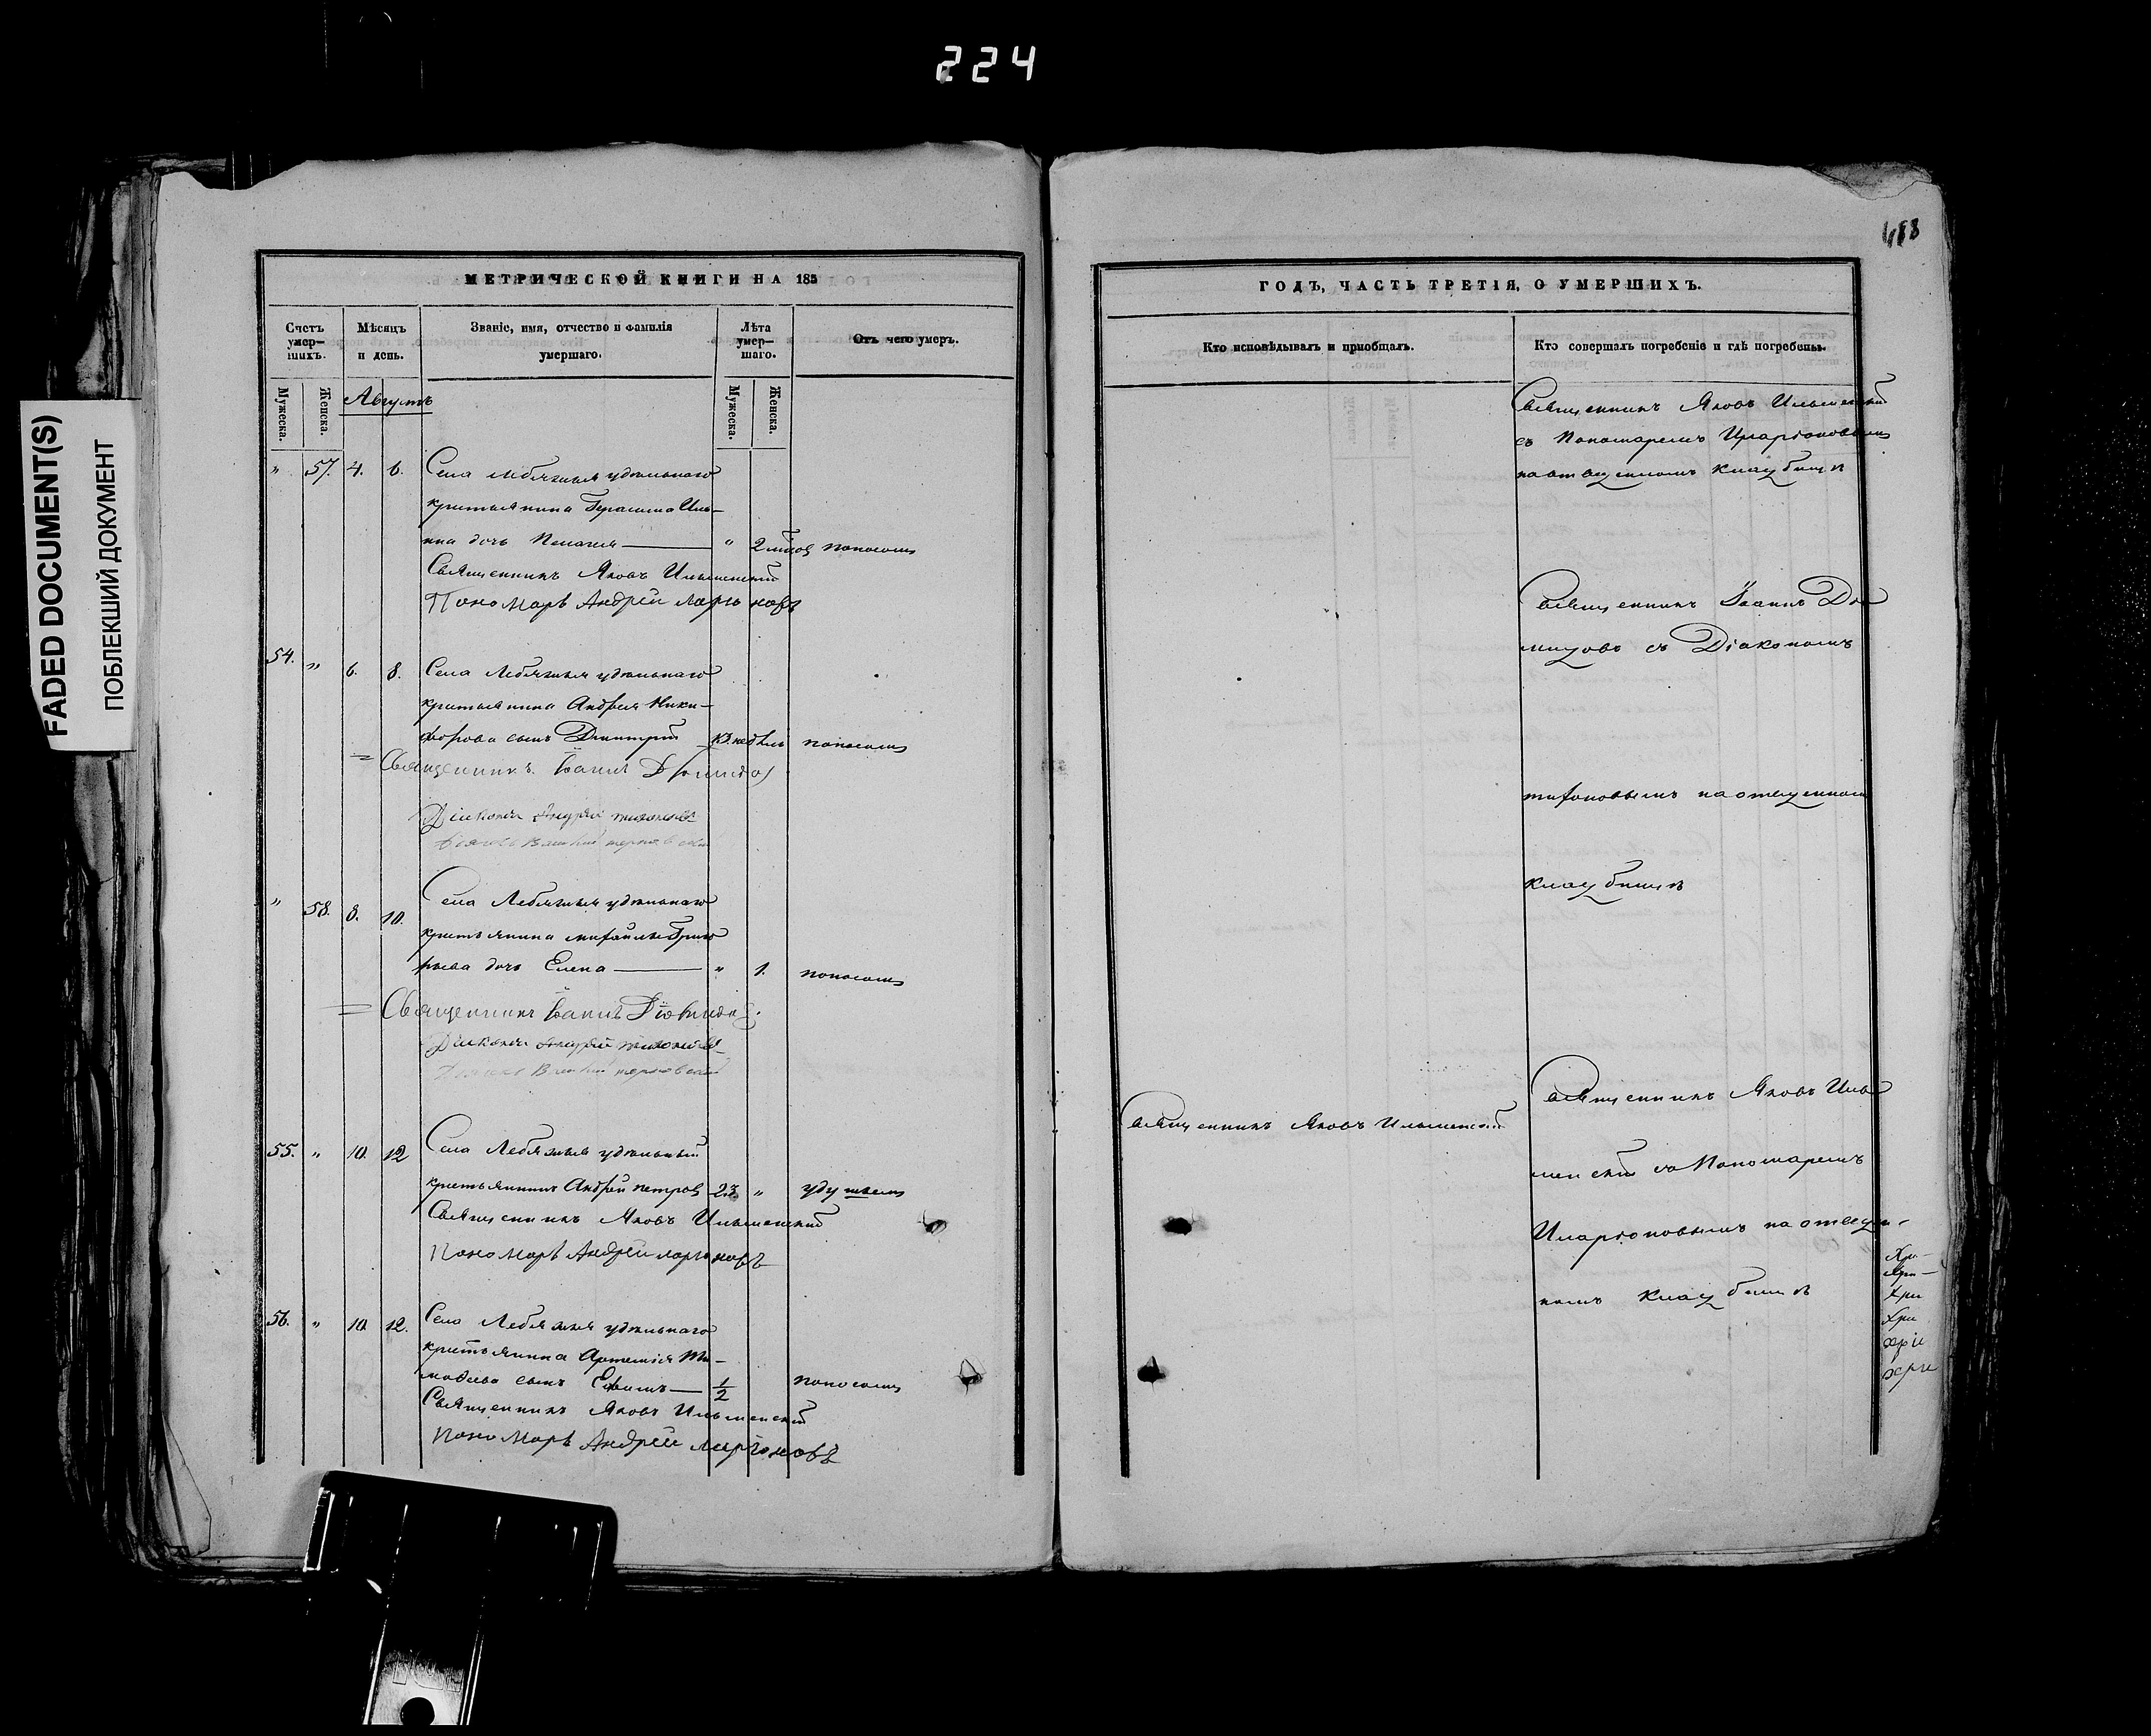 224
FADED DOCUMENT(S)
ПОБЛЕКШИЙ ДОКУМЕНТ
МЕТРИЧЕСКОЙ КНИГИ НА 185
Счетъ умер-
шихъ.
Мѣсяцъ
и день.
Званіе, имя, отчество и фамилія
умершаго.
Лѣта
умер-
шаго.
Отъ чего умеръ.
Мужеска.
Женска.
Августъ
Мужеска.
Женска.
" 57. 4. 6. Села Лебяжья удѣльнаго
крестьянина Герасима Иль-
ина дочь Пелагея " 2 поносомъ
Священникъ Яковъ Ильменскій
Пономарь Андрей Ларіоновъ
54. " 6. 8. Села Лебяжья удѣльнаго
крестьянина Андрея Ники-
форова сынъ Дмитрій недѣль поносомъ
Священникъ Іоаннъ
Діаконъ Андрей Тихоновъ
" 58. 8. 10. Села Лебяжья удѣльнаго
крестьянина Михайлы Григо
рьева дочь Елена " 1. поносомъ
Священникъ Іоаннъ
Діаконъ Андрей Тихоновъ
55. " 10. 12 Села Лебяжья удѣльный
крестьянинъ Андрей Петровъ 23 " удушьемъ
Священникъ Яковъ Ильменскій
Пономарь Андрей Ларіоновъ
56. " 10. 12. Села Лебяжья удѣльнаго
крестьянина Артемія Ти-
мофеева сынъ Ефимъ 1/2 поносомъ
Священникъ Яковъ Ильменскій
Пономарь Андрей Ларіоновъ
488
ГОДЪ, ЧАСТЬ ТРЕТІЯ, О УМЕРШИХЪ.
Кто исповѣдывалъ и пріобщалъ.
Кто совершалъ погребеніе и гдѣ погребены.
Священникъ Яковъ Ильменскій
съ Пономаремъ Иларіоновымъ
на отведенномъ кладбищѣ
Священникъ Іоаннъ
съ Діакономъ
Тихоновымъ на отведенномъ
кладбищѣ
Священникъ Яковъ Ильменскій
Священникъ Яковъ Иль
менскій съ Пономаремъ
Иларіоновымъ на отведен-
номъ кладбищѣ
Хри-
Хри-
Хри
Хри
хри
хри